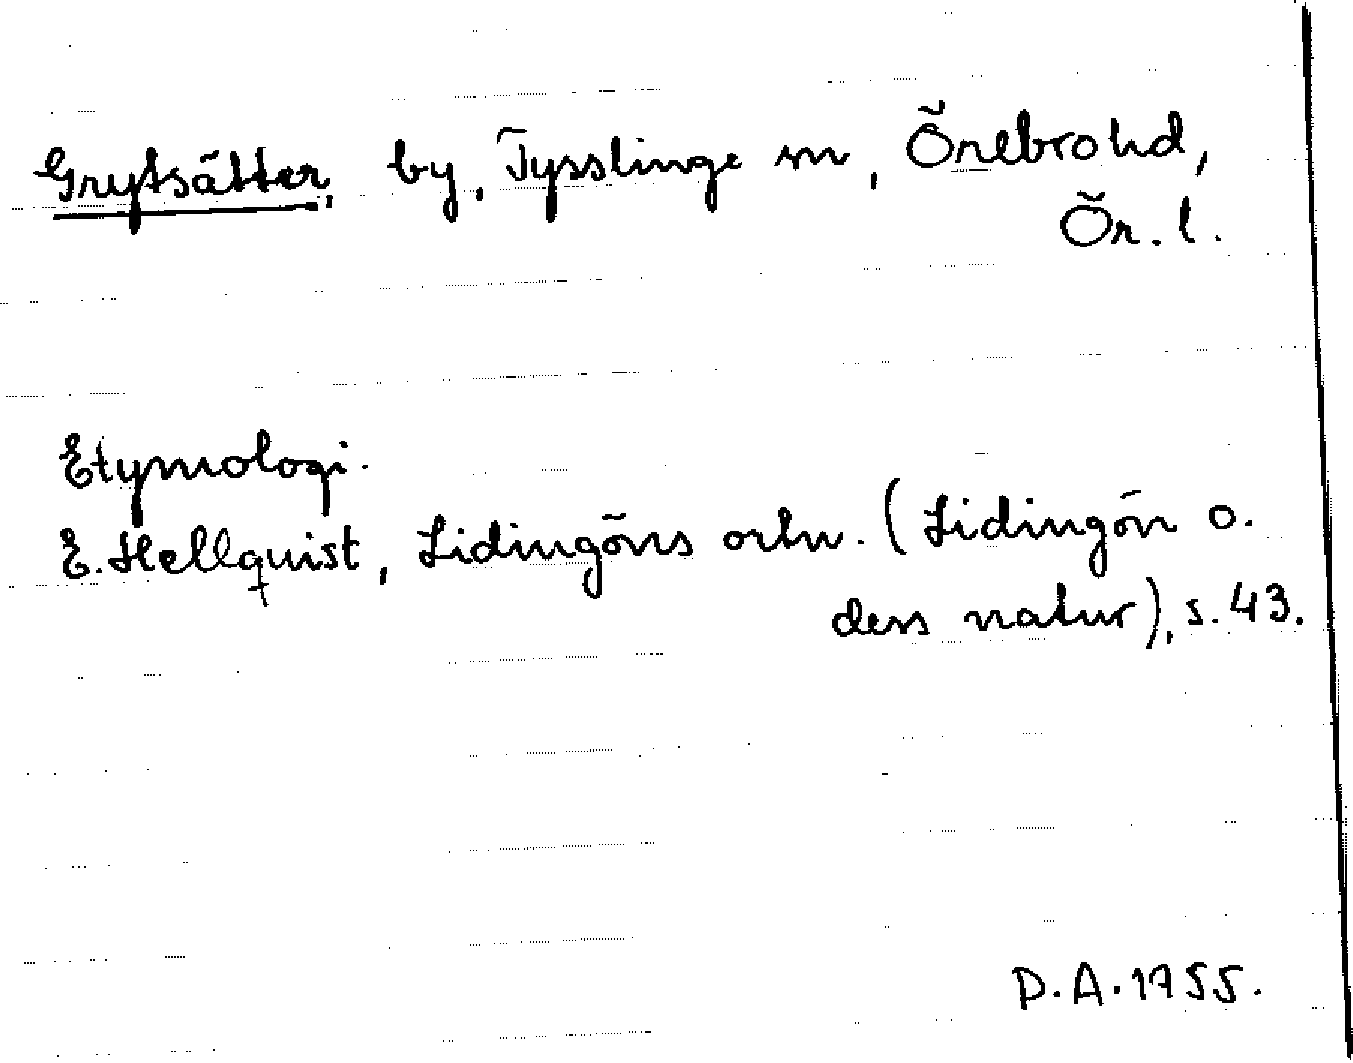 Grytsätter, by, Tysslinge sn, Örebro hd,
Ör. l.
Etymologi.
E. Hellquist, Lidingöns ortn. (Lidingön o.
dess natur), s. 43.
D.A. 1955.